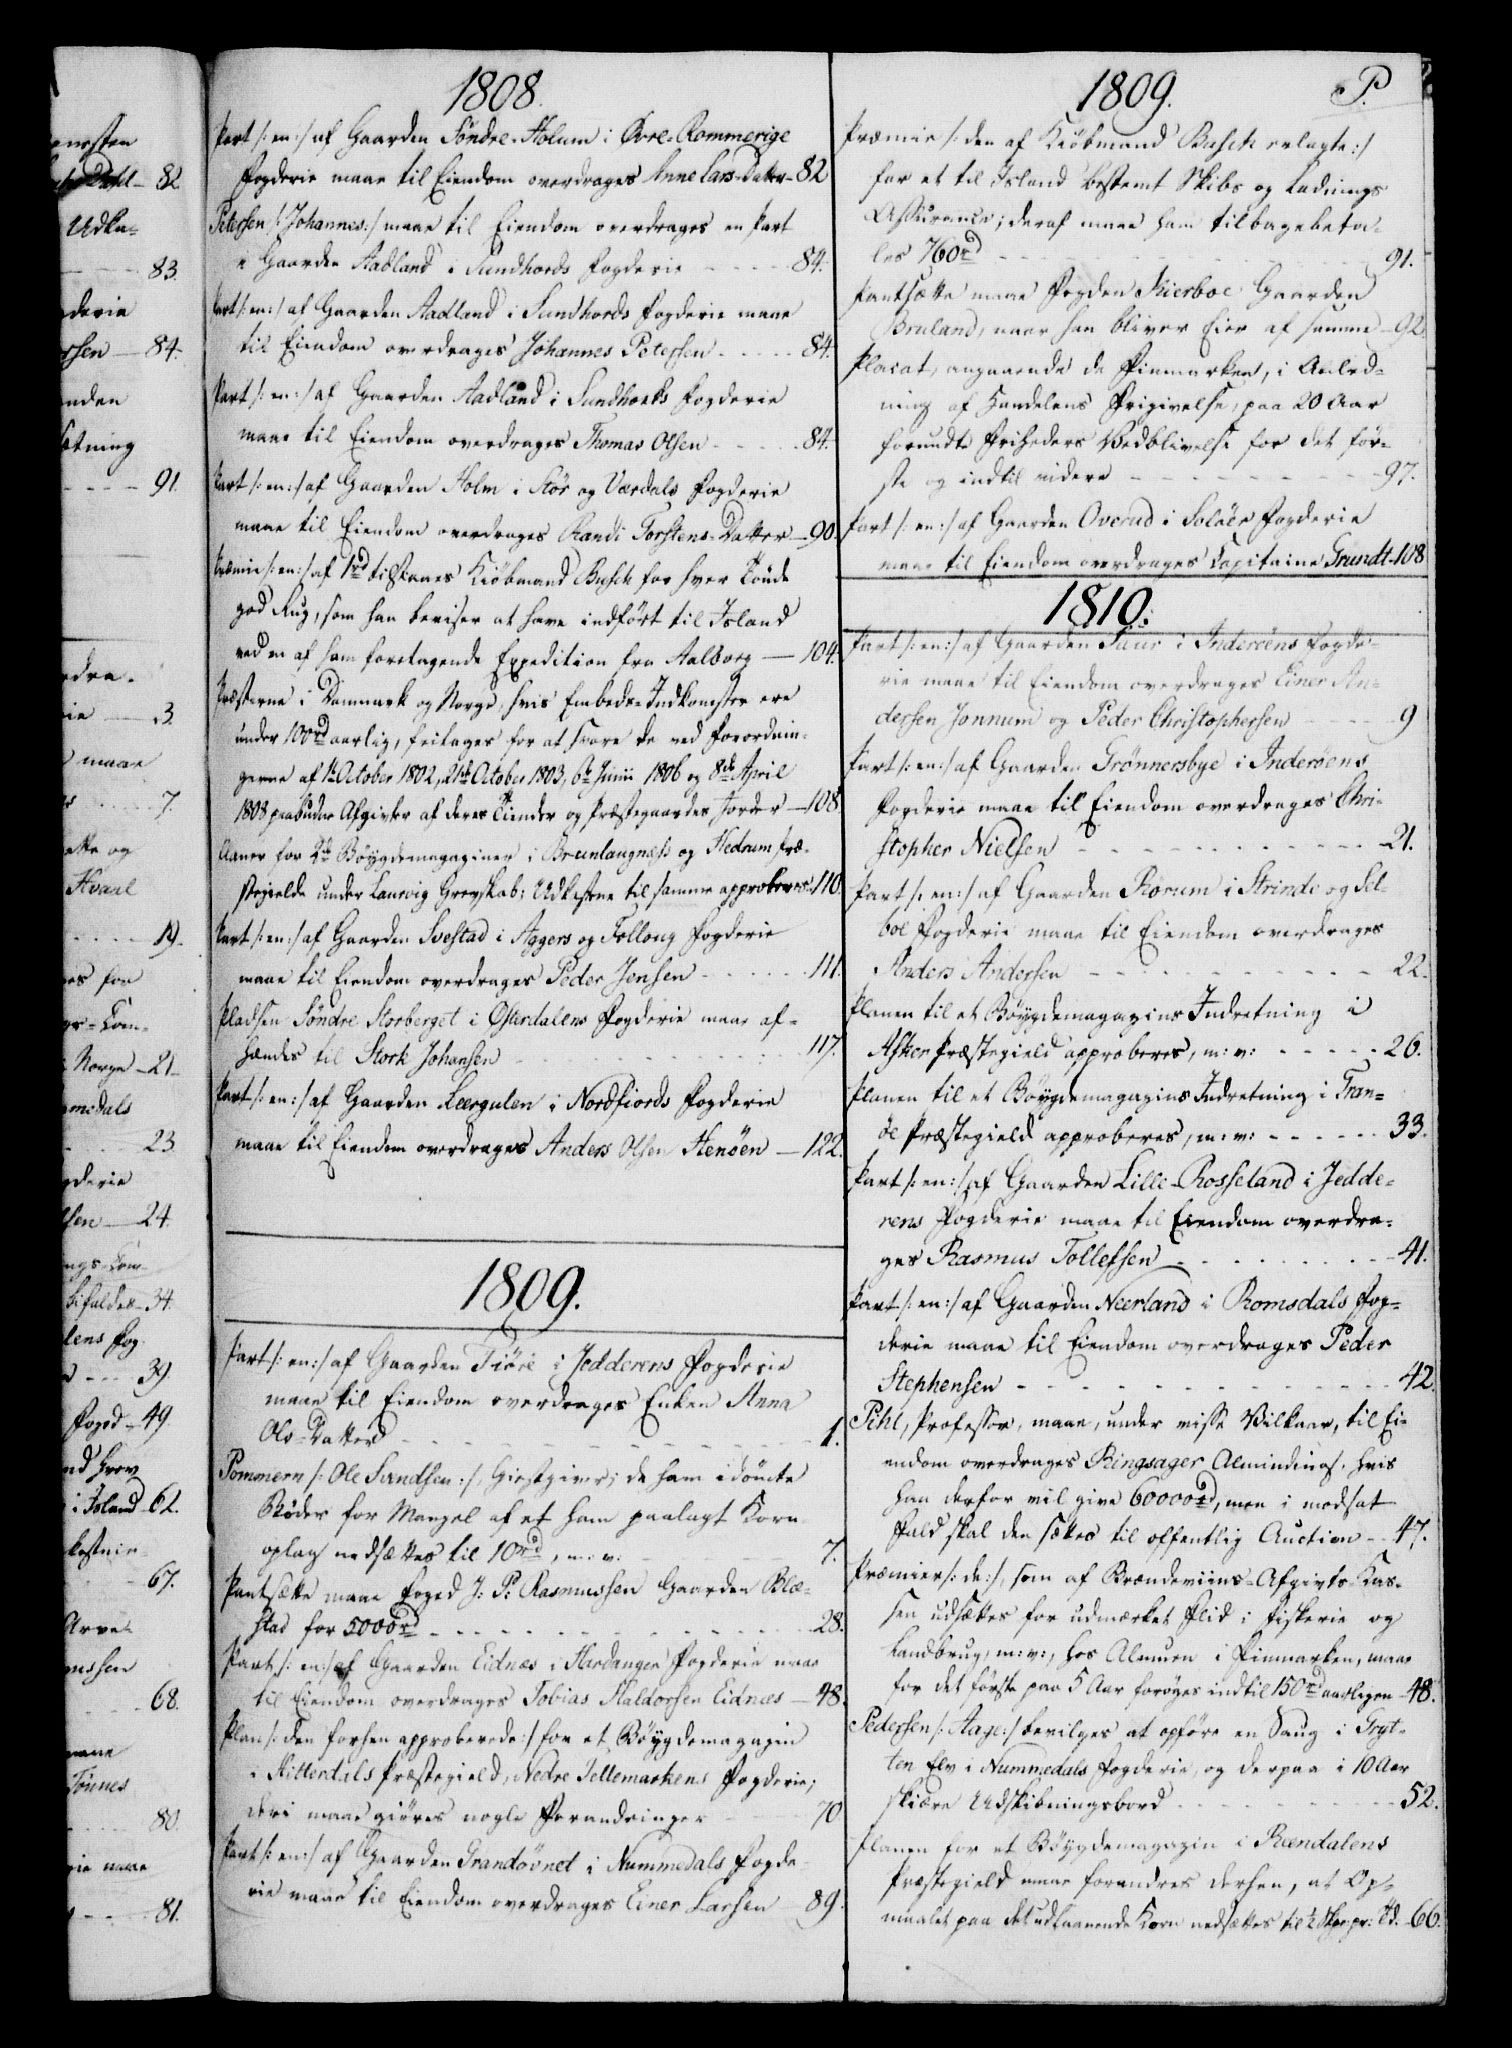 1808.
Part /: en :/ af Gaarden Söndre-Holum i Övre-Rommerige
Fogderie maae til Eiendom overdrages Anne Lars-Datter – 82
Petersen /: Johannes :/ maae til Eiendom overdrages en Part
i Gaarden Aadland i Sundhords Fogderie - - - - 84.
Part /: en :/ af Gaarden Aadland i Sundhords Fogderie maae
til Eiendom overdrages Johannes Petersen - - - - 84.
Part /: en :/ af Gaarden Aadland i Sundhords Fogderie
maae til Eiendom overdrages Thomas Olsen - - - - 84.
Part /: en :/ af Gaarden Holm i Stör og Værdals Fogderie
maae til Eiendom overdrages Randi Torstens-Datter – 90.
Præmie /: en :/ af 1rd tilstaaes Kiöbmand Busch for hver Tönde
god Rug, som han beviser at have indfört til Island
ved en af ham foretagende Expedition fra Aalborg — 104.
Præsterne i Danmark og Norge, hvis Embeds-Indkomster ere
under 100rd aarlig, fritages for at svare de ved Forordnin-
gerne af 1te October 1802, 21de October 1803, 6te Junii 1806 og 8de April
1808 paabudne Afgivter af deres Tiender og Præstegaardes Jorder – 108.
Planer for 2de Böygdemagaziner i Brunlaugnæss og Hedrum Præ-
stegielde under Laurvig Grevskab; Udkastene til samme approberes: 110.
Part /: en :/ af Gaarden Svestad i Aggers og Folloug Fogderie
maae til Eiendom overdrages Peder Jensen - - - - 111.
Pladsen Söndre Storberget i Österdalens Fogderie maae af-
hændes til Stork Johansen - - - - 117.
Part /: en :/ af Gaarden Leergulen i Nordfiords Fogderie
maae til Eiendom overdrages Anders Olsen Henöen — 122.
1809.
Part /: en :/ af Gaarden Tiöre i Jedderens Fogderie
maae til Eiendom overdrages Enken Anna
Ols-Datter - - - - 1.
Pommern /: Ole Svendsen :/, Giestgiver; de ham idömte
Böder for Mangel af et ham paalagt Korn-
oplag nedsættes til 10rd, m: v: - - - - 7.
Pantsætte maae Foged J: P: Rasmussen Gaarden Blæ-
stad for 5000rd - - - - 28.
Part /: en :/ af Gaarden Eidnæs i Hardanger Fogderie maae
til Eiendom overdrages Tobias Haldorsen Eidnæs — 48.
Plan /: den forhen approberede :/ for et Böygdemagazin
i Hitterdals Præstegield, Nedre Tellemarkens Fogderie;
deri maae giöres nogle Forandringer - - 70
Part /: en :/ af Gaarden Grandövnet i Nummedals Fogde-
rie maae til Eiendom overdrages Einer Larsen – 89.
1809. P.
Præmie /: den af Kiöbmand Busch erlagte :/
for et til Island bestemt Skibs og Ladnings
Assurance; deraf maae ham tilbagebeta-
les 760rd - - - - 91.
Pantsætte maae Fogden Kierboe Gaarden
Bruland, naar han bliver Eier af samme – 92.
Placat, angaaende de Finmarken, i Anled-
ning af Handelens Frigivelse, paa 20 Aar
forundte Friheders Vedblivelse for det för-
ste og indtil videre - - - - 97.
Part /: en :/ af Gaarden Overud i Solöer Fogderie
maae til Eiendom overdrages Capitaine Grundt – 108
1810.
Part /: en :/ af Gaarden Suur i Inderöens Fogde-
rie maae til Eiendom overdrages Einer An-
dersen Jonnum og Peder Christophersen - - 9
Part /: en :/ af Gaarden Grönnersbye i Inderöens
Fogderie maae til Eiendom overdrages Chri-
stopher Nielsen - - - - 21.
Part /: en :/ af Gaarden Rorum i Strinde og Sel-
boe Fogderie maae til Eiendom overdrages
Anders Andersen - - - - 22.
Planen til et Böygdemagazins Indretning i
Asker Præstegield approberes, m: v: - - - - 26.
Planen til et Böygdemagazins Indretning i Tran-
öe Præstegield approberes, m: v: - - - - 33.
Part /: en :/ af Gaarden Lille-Rosseland i Jedde-
rens Fogderie maae til Eiendom overdra-
ges Rasmus Tollefsen - - - - 41.
Part /: en :/ af Gaarden Neerland i Romsdals Fog-
derie maae til Eiendom overdrages Peder
Stephensen - - - - 42.
Pihl, Professor, maae, under visse Vilkaar, til Ei-
endom overdrages Ringsager Alminding, hvis
han derfor vil give 60000rd, men i modsat
Fald skal den sættes til offentlig Auction - - 47.
Præmier /: de :/, som af Brændeviins-Afgivts-Kas-
sen udsættes for udmærket Flid i Fiskerie og
Landbrug, m: v:, hos Almuen i Finmarken, maae
for det förste paa 5 Aar foröges indtil 150rd aarligen – 48.
Pedersen /: Aage :/ bevilges at opföre en Saug i Gryt-
ten Elv i Nummedals Fogderie, og derpaa i 10 Aar
skiære Udskibningsbord - - - - 52.
Planen for et Böygdemagazin i Rændalens
Præstegield maae forandres derhen, at Op-
maalet paa det udlaanende Korn nedsættes til ½ Skpe pr: Td. – 66.